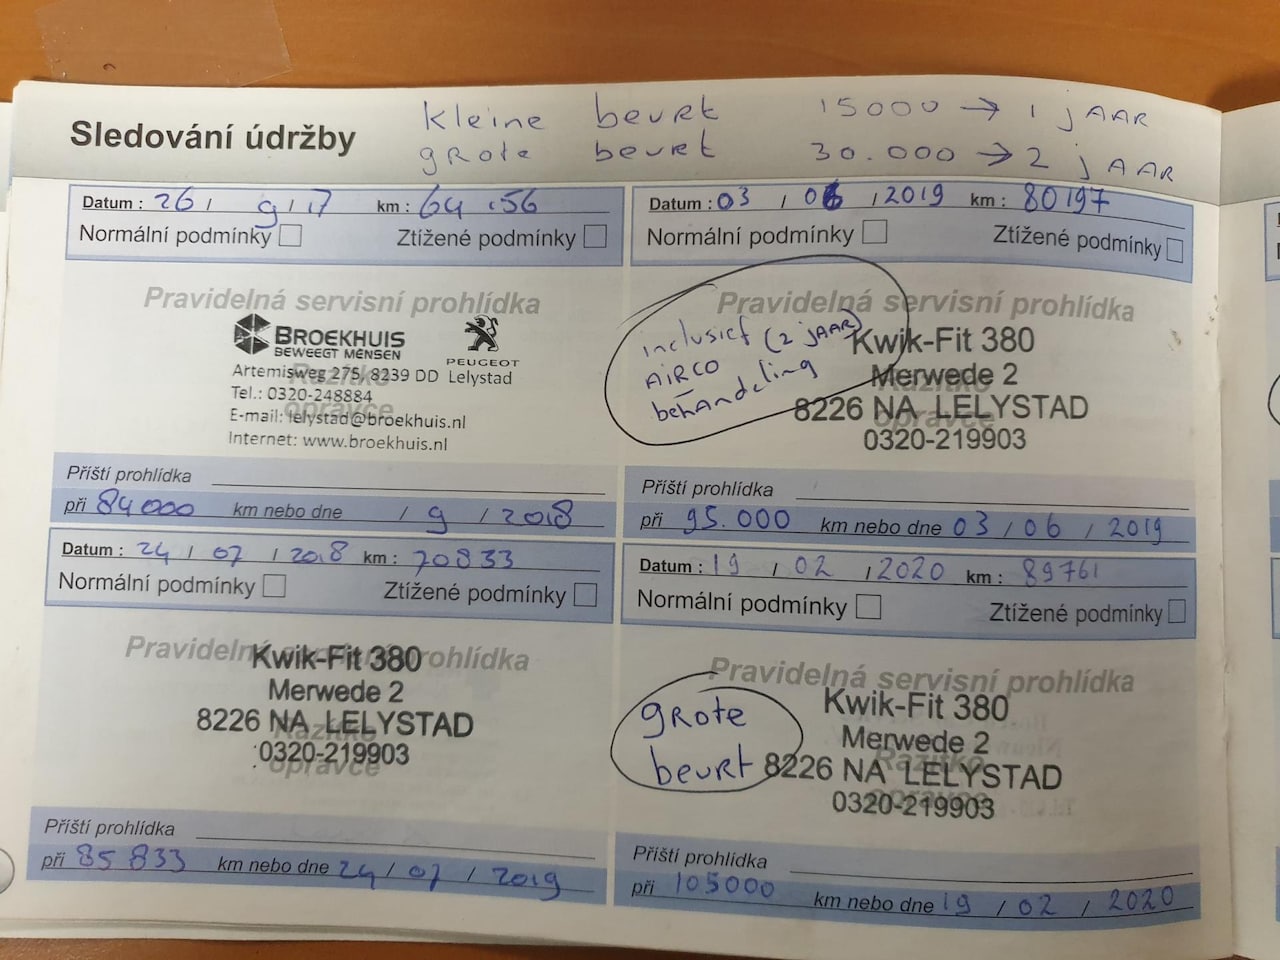 Sledování údržby
kleine beurt 15000 → 1 jAAR
gRote beurt 30.000 → 2 jAAR
Datum : 26 / 9 / 17 km : 64 156
Normální podmínky Ztížené podmínky
Pravidelná servisní prohlídka
BROEKHUIS
BEWEEGT MENSEN
PEUGEOT
Artemisweg 275, 8239 DD Lelystad
Razítko
Tel.: 0320-248884
opravce
E-mail: lelystad@broekhuis.nl
Internet: www.broekhuis.nl
Příští prohlídka
při 84000 km nebo dne / 9 / 2018
Datum : 24 / 07 / 2018 km : 70833
Normální podmínky Ztížené podmínky
Pravidelná servisní prohlídka
Kwik-Fit 380
Merwede 2
8226 NA LELYSTAD
Razítko
0320-219903
opravce
Příští prohlídka
při 85833 km nebo dne 24 / 07 / 2019
Datum : 03 / 06 / 2019 km : 80197
Normální podmínky Ztížené podmínky
Pravidelná servisní prohlídka
inclusief (2 jAAR)
AiRCO
behandeling
Kwik-Fit 380
Merwede 2
Razítko
8226 NA LELYSTAD
opravce
0320-219903
Příští prohlídka
při 95.000 km nebo dne 03 / 06 / 2019
Datum : 19 / 02 / 2020 km : 89761
Normální podmínky Ztížené podmínky
Pravidelná servisní prohlídka
gRote
beurt
Kwik-Fit 380
Merwede 2
Razítko
8226 NA LELYSTAD
opravce
0320-219903
Příští prohlídka
při 105000 km nebo dne 19 / 02 / 2020